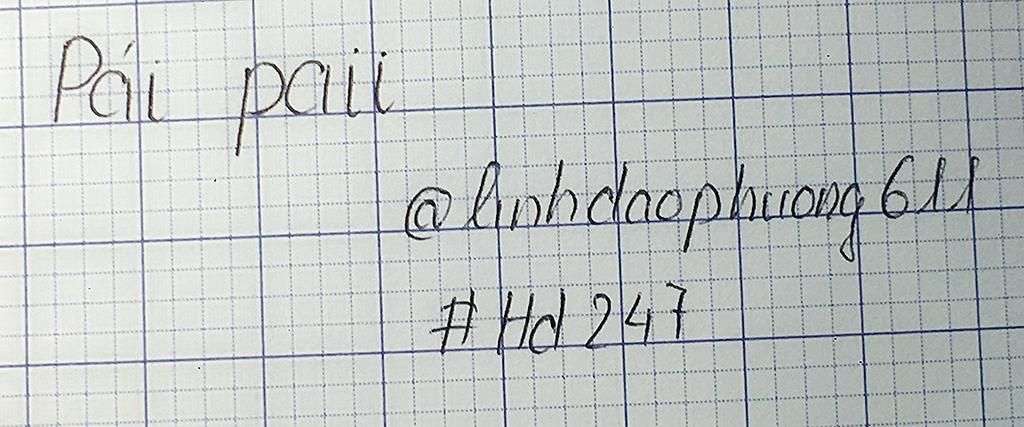 Pái paii
@linhdaophuong611
#Hd247